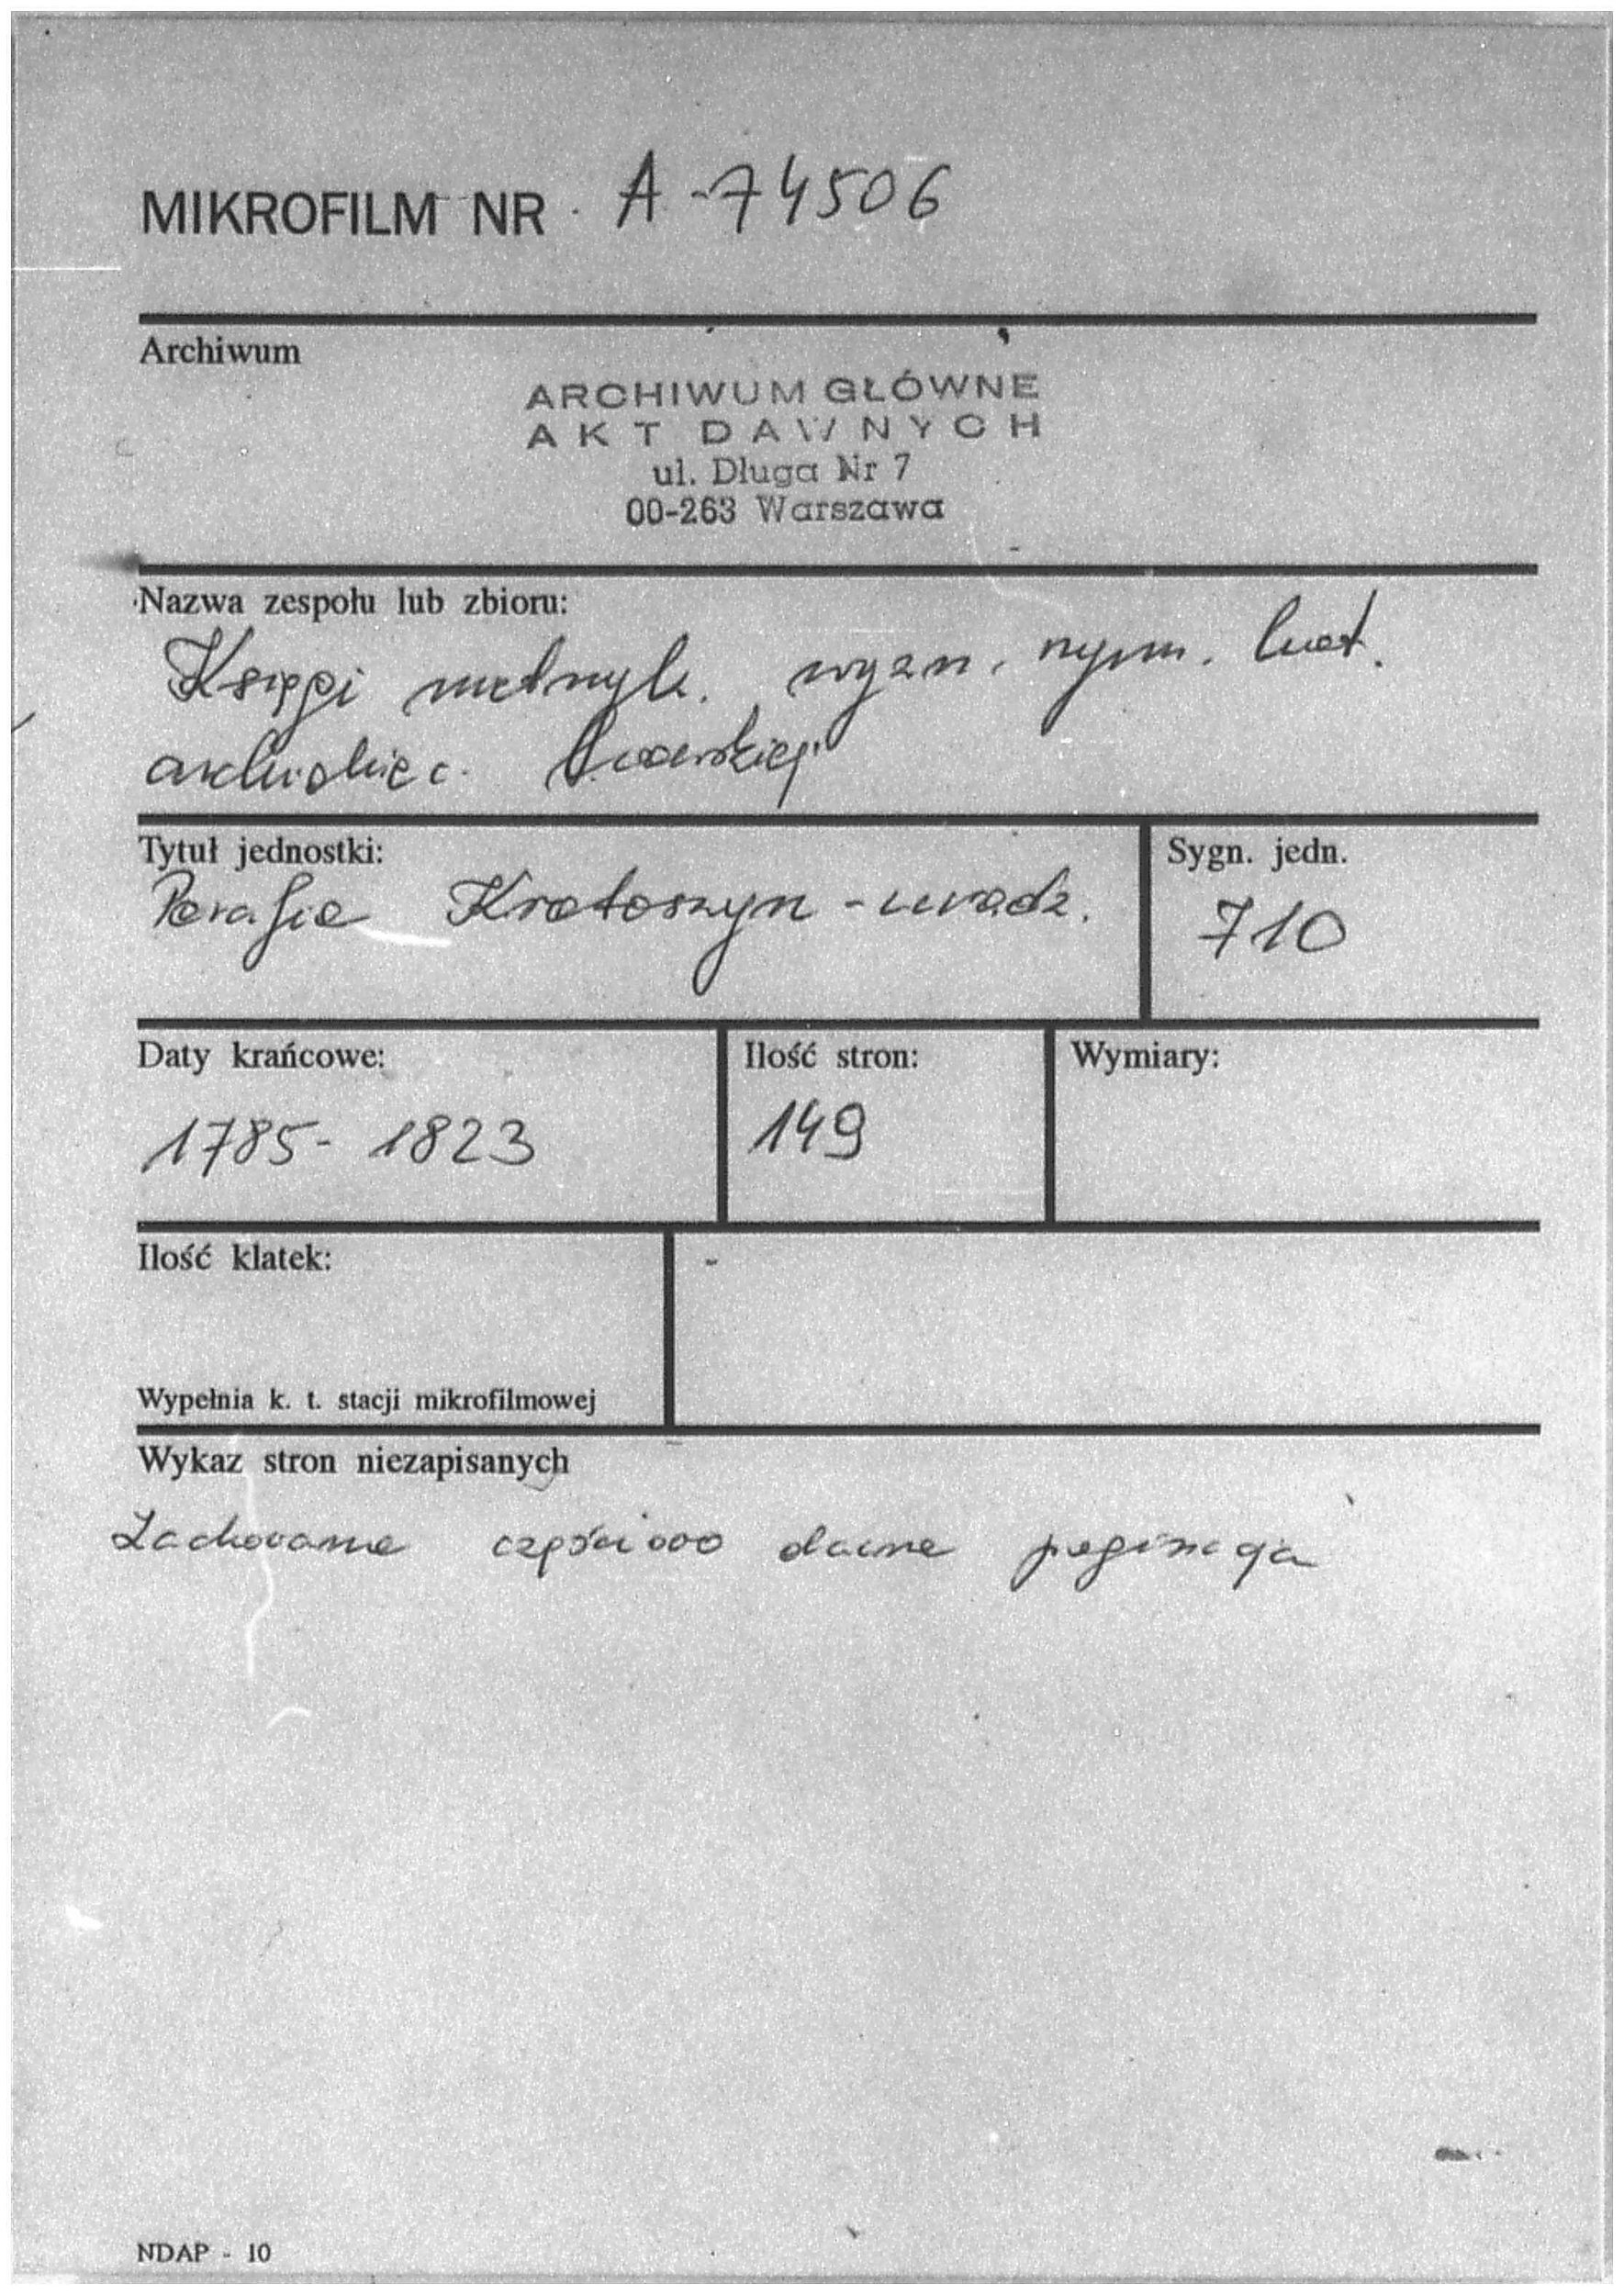 MIKROFILM NR A-74506
Archiwum
ARCHIWUM GŁÓWNE
AKT DAWNYCH
ul. Długa Nr 7
00-263 Warszawa
Nazwa zespołu lub zbioru:
Księgi metryk. wyzn. rzym. kat.
archidiec. Lwowskiej
Tytuł jednostki:
Parafia Krotoszyn - urodz.
Sygn. jedn.
710
Daty krańcowe:
1785 - 1823
Ilość stron:
149
Wymiary:
Ilość klatek:
Wypełnia k. t. stacji mikrofilmowej
Wykaz stron niezapisanych
Zachowano częściowo dawną paginację
NDAP - 10